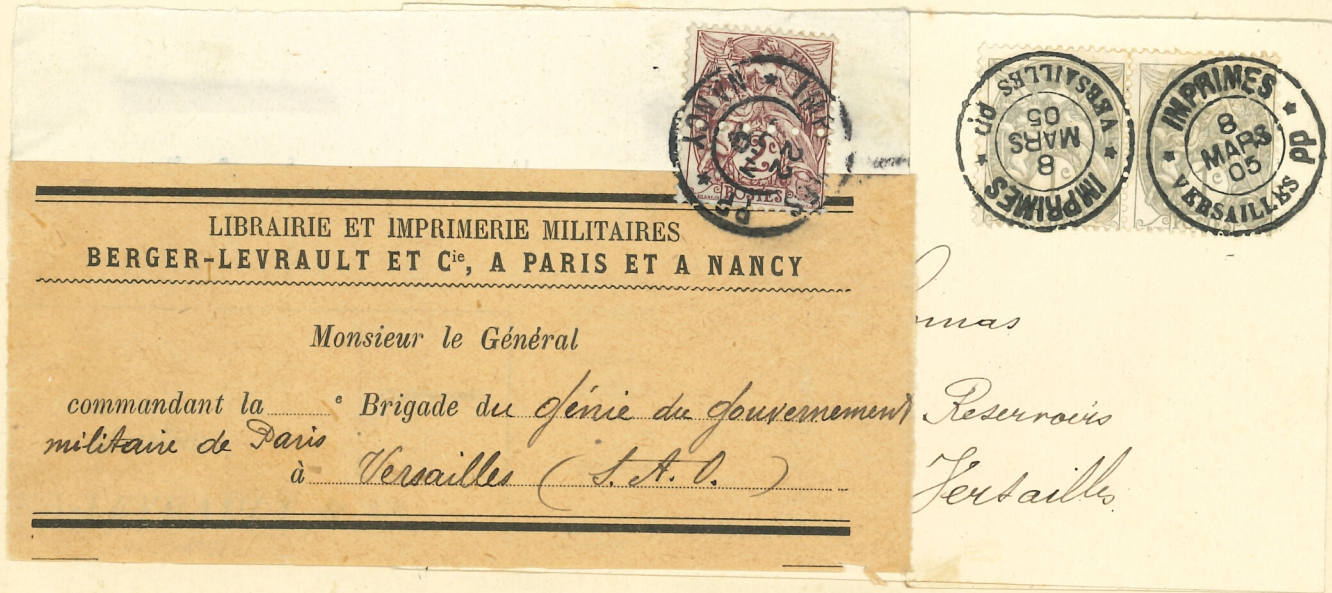 NANCY * IMP
LIBRAIRIE ET IMPRIMERIE MILITAIRES
BERGER-LEVRAULT ET Cie, A PARIS ET A NANCY
Monsieur le Général
commandant la e Brigade du génie du gouvernement
militaire de Paris
à Versailles (S. A. O.)
IMPRIMES * VERSAILLES PP *
8
MARS
05
IMPRIMES * VERSAILLES PP *
8
MARS
05
Reservoirs
Versailles